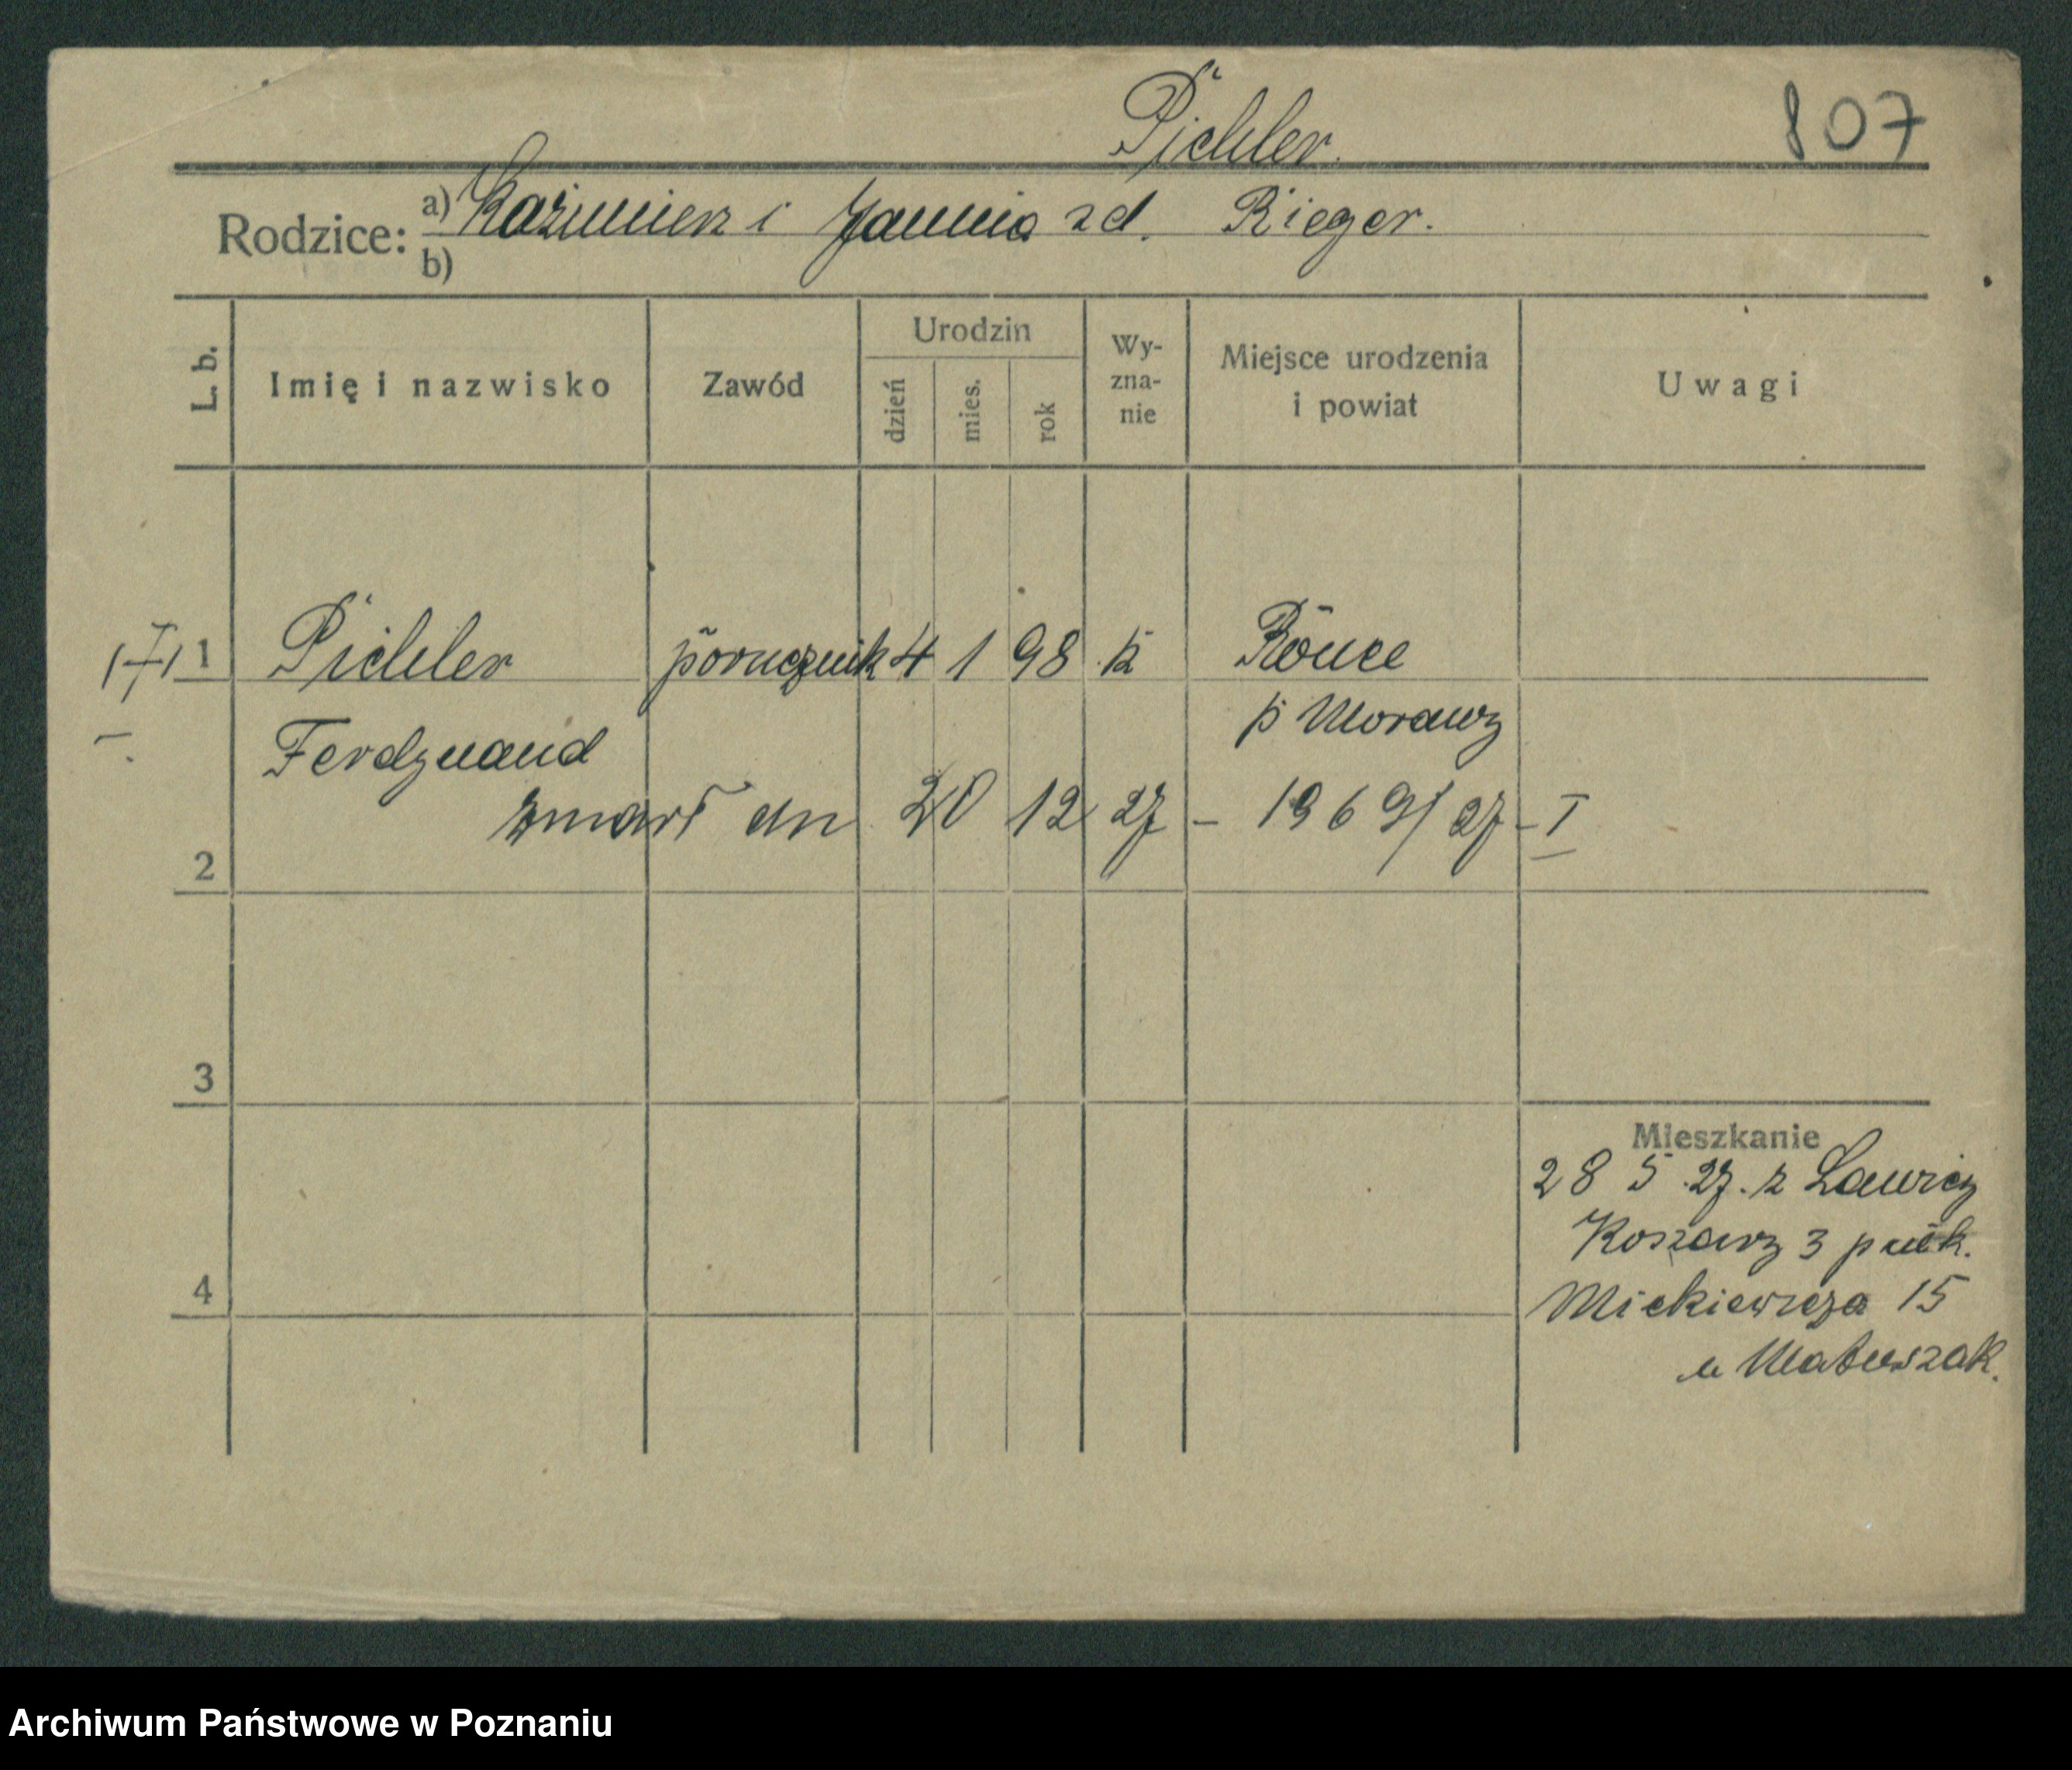 Pichler.
807
Rodzice: a) Kazimierz i Jannia zd. Rieger.
b)
L. b.
Imię i nazwisko
Zawód
Urodzin
dzień
mies.
rok
Wy-
zna-
nie
Miejsce urodzenia
i powiat
Uwagi
1 Pichler porucznik 4 1 98 k
p Morawy
Ferdynand
zmarł dn 20 12 27 - 1969/27 - I
2
3
4
Mieszkanie
28 5 .27. z Lawicy
Koszary 3 p
Mickiewicza 15
u Matuszak.
Archiwum Państwowe w Poznaniu